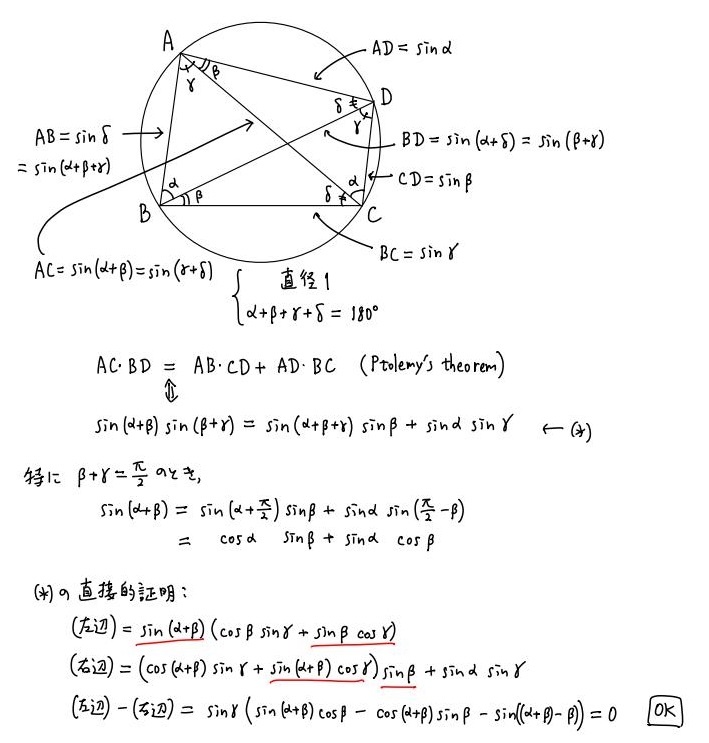 A
β
γ
AD = sinα
δ
D
γ
AB = sinδ
= sin(α+β+γ)
BD = sin(α+δ) = sin(β+γ)
α
β
B
δ
α
C
CD = sinβ
BC = sinγ
AC = sin(α+β) = sin(γ+δ)
直径1
α+β+γ+δ = 180°
AC・BD = AB・CD + AD・BC (Ptolemy's theorem)
⇕
sin(α+β) sin(β+γ) = sin(α+β+γ) sinβ + sinα sinγ ← (*)
特に β+γ = π/2 のとき,
sin(α+β) = sin(α+π/2) sinβ + sinα sin(π/2-β)
= cosα sinβ + sinα cosβ
(*)の直接的証明:
(左辺) = sin(α+β)(cosβ sinγ + sinβ cosγ)
(右辺) = (cos(α+β) sinγ + sin(α+β) cosγ) sinβ + sinα sinγ
(左辺) - (右辺) = sinγ (sin(α+β) cosβ - cos(α+β) sinβ - sin((α+β)-β)) = 0 OK